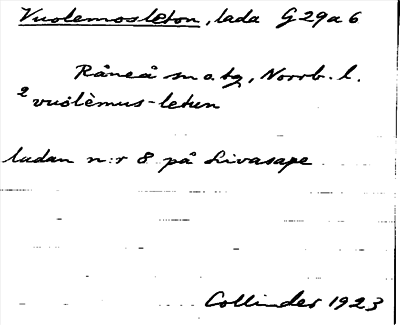 Vuolemosleton, lada G29a6
Råneå sn o. tg, Norrb. l.
2 vuolèmus-letun
ladan n:r 8 på Livasape
Collinder 1923